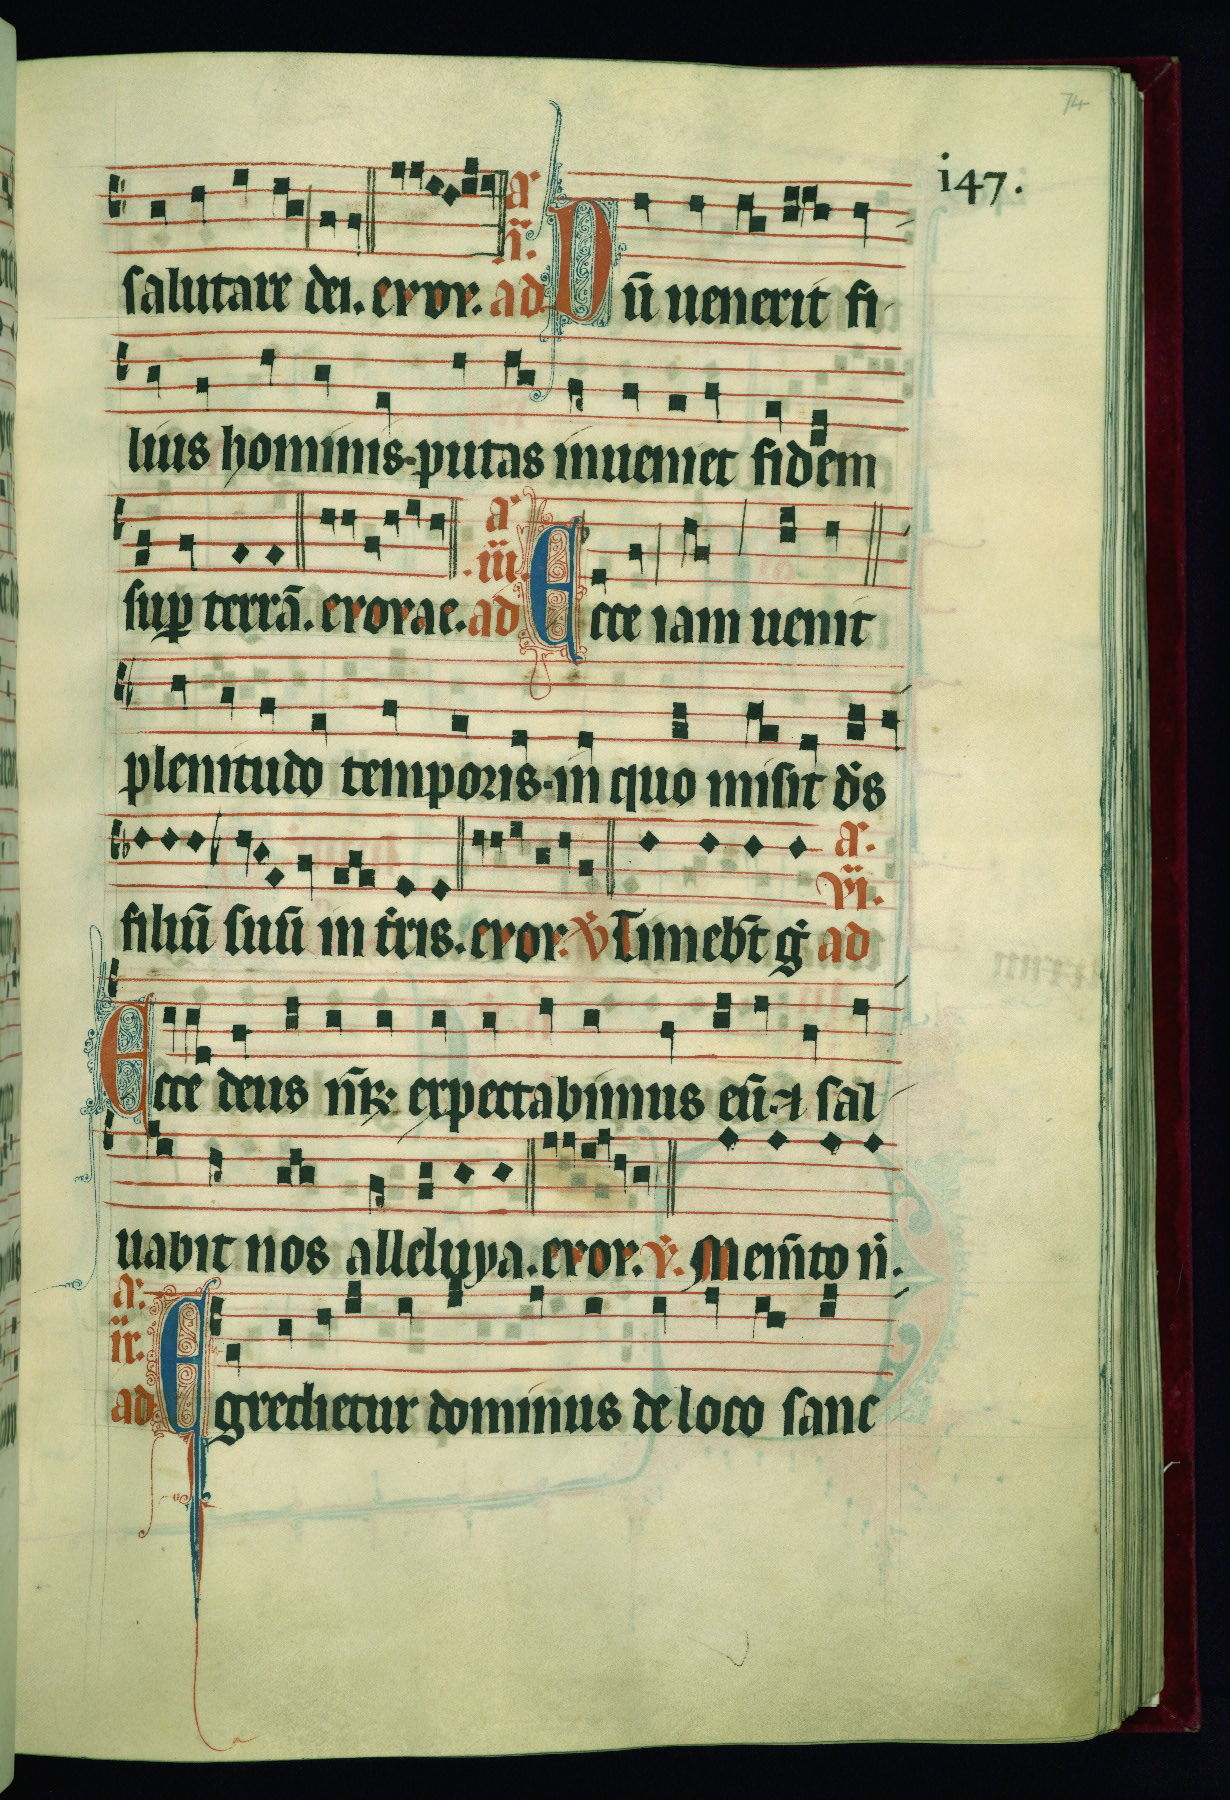 74
i47.
a.
salutare dei. evov. ad Dū uenerit fi
lius hominis. putas inueniet fidem
a.
iii.
sup terrā. evovae. ad Ecce iam uenit
plenitudo temporis. in quo misit ds
a.
vi.
filiū suū in tris. evov. v Timebt g ad
Ecce deus nr. expectabimus eū. et sal
uabit nos alleluya. evov. v. Memto n.
a.
ix.
ad Egredietur dominus de loco sanc